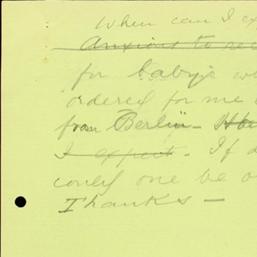 When can I ex
Anxious to rec
for baby's w
ordered for me
from Berlin -
I expect. If
could one be o
Thanks -